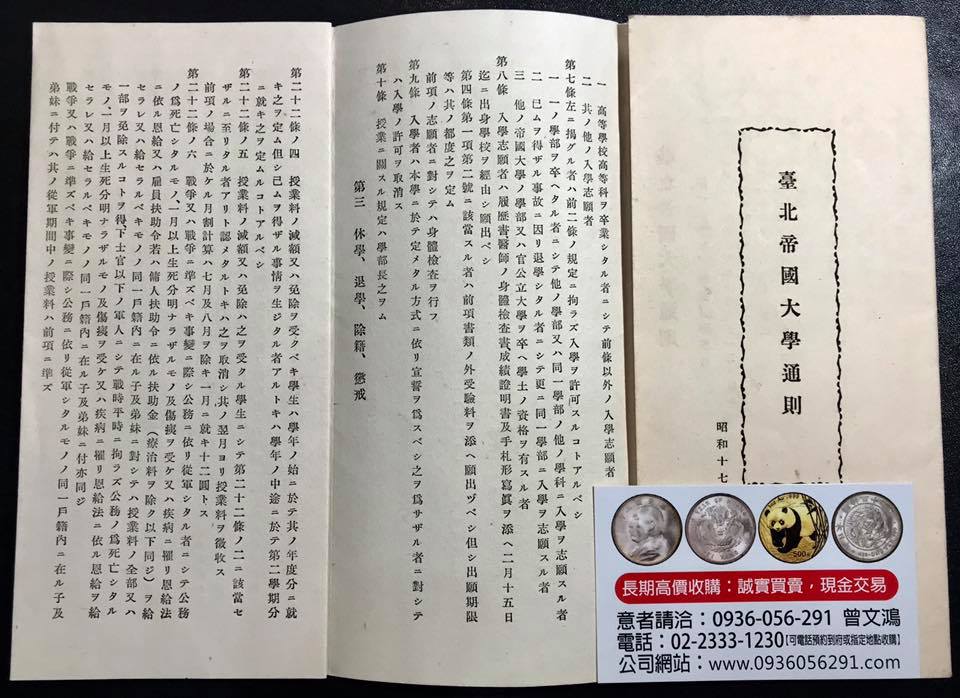 臺北帝國大學通則
昭和十七
一　高等學校高等科ヲ卒業シタル者ニシテ前條以外ノ入學志願者
二　其ノ他ノ入學志願者
第七條　左ニ揭グル者ハ前二條ノ規定ニ拘ラズ入學ヲ許可スルコトアルベシ
一　一ノ學部ヲ卒ヘタル者ニシテ他ノ學部又ハ同一學部ノ他ノ學科ニ入學ヲ志願スル者
二　已ムヲ得ザル事故ニ因リ退學シタル者ニシテ更ニ同一學部ニ入學ヲ志願スル者
三　他ノ帝國大學ノ學部又ハ官公立大學ヲ卒ヘ學士ノ資格ヲ有スル者
第八條　入學志願者ハ履歷書醫師ノ身體檢查書、成績證明書及手札形寫眞ヲ添ヘ二月十五日
迄ニ出身學校ヲ經由シ願出ベシ
第四條第一項第二號ニ該當スル者ハ前項書類ノ外受驗料ヲ添ヘ願出ヅベシ但シ出願期限
等ハ其ノ都度之ヲ定ム
前項ノ志願者ニ對シテハ身體檢查ヲ行フ
第九條　入學者ハ本學ニ於テ定メタル方式ニ依リ宣誓ヲ爲スベシ之ヲ爲サザル者ニ對シテ
ハ入學ノ許可ヲ取消ス
第十條　授業ニ關スル規定ハ學部長之ヲ定ム
第三　休學、退學、除籍、懲戒
第二十二條ノ四　授業料ノ減額又ハ免除ヲ受クベキ學生ハ學年ノ始ニ於テ其ノ年度分ニ就
キ之ヲ定ム但シ已ムヲ得ザル事情ヲ生ジタル者アルトキハ學年ノ中途ニ於テ第二學期分
ニ就キ之ヲ定ムルコトアルベシ
第二十二條ノ五　授業料ノ減額又ハ免除ハ之ヲ受クル學生ニシテ第二十二條ノ二ニ該當セ
ザルニ至リタル者アリト認メタルトキハ之ヲ取消シ其ノ翌月ヨリ授業料ヲ徵收ス
前項ノ場合ニ於ケル月割計算ハ七月及八月ヲ除キ一月ニ就キ十二圓トス
第二十二條ノ六　戰爭又ハ戰爭ニ準ズベキ事變ニ際シ公務ニ依リ從軍シタル者ニシテ公務
ノ爲死亡シタルモノ、一月以上生死分明ナラザルモノ及傷痍ヲ受ケ又ハ疾病ニ罹リ恩給法
ニ依ル恩給又ハ雇員扶助令若ハ傭人扶助令ニ依ル扶助金（療治料ヲ除ク以下同ジ）ヲ給
セラレ又ハ給セラルベキモノノ同一戶籍內ニ在ル子及弟妹ニ對シテハ授業料ノ全部又ハ
一部ヲ免除スルコトヲ得、下士官以下ノ軍人ニシテ戰時平時ニ拘ラズ公務ノ爲死亡シタル
モノ、一月以上生死分明ナラザルモノ及傷痍ヲ受ケ又ハ疾病ニ罹リ恩給法ニ依ル恩給ヲ給
セラレ又ハ給セラルベキモノノ同一戶籍內ニ在ル子及弟妹ニ付亦同ジ
戰爭又ハ戰爭ニ準ズベキ事變ニ際シ公務ニ依リ從軍シタルモノノ同一戶籍內ニ在ル子及
弟妹ニ付テハ其ノ從軍期間中ノ授業料ハ前項ニ準ズ
長期高價收購：誠實買賣，現金交易
意者請洽：0936-056-291 曾文鴻
電話：02-2333-1230【可電話預約到府或指定地點收購】
公司網站：www.0936056291.com